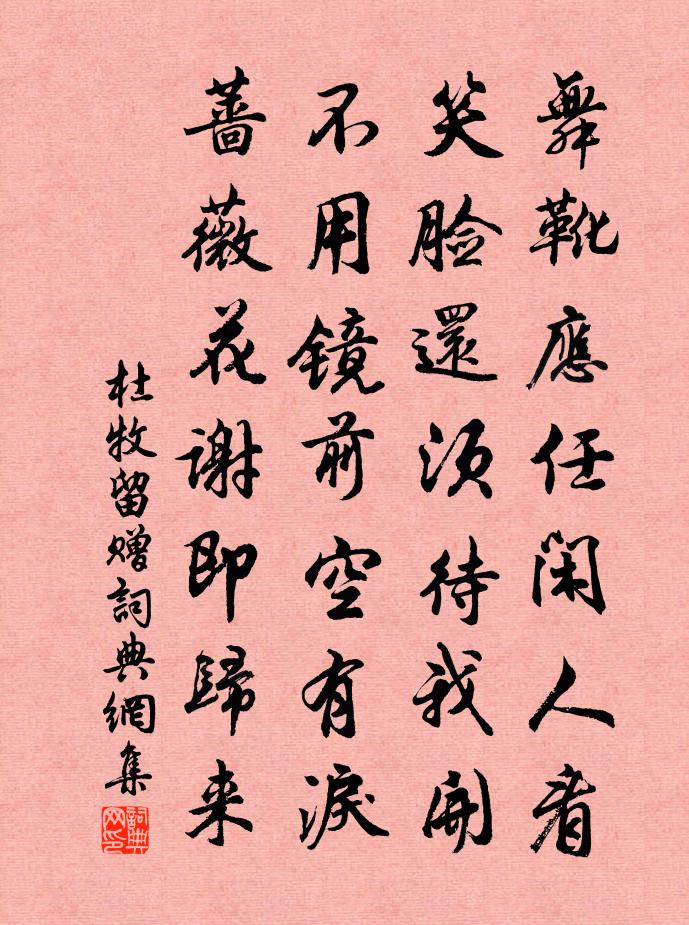 舞靴應任閑人看
笑臉還須待我開
不用鏡前空有淚
薔薇花謝即歸来
杜牧留贈詞典網集
詞典網印